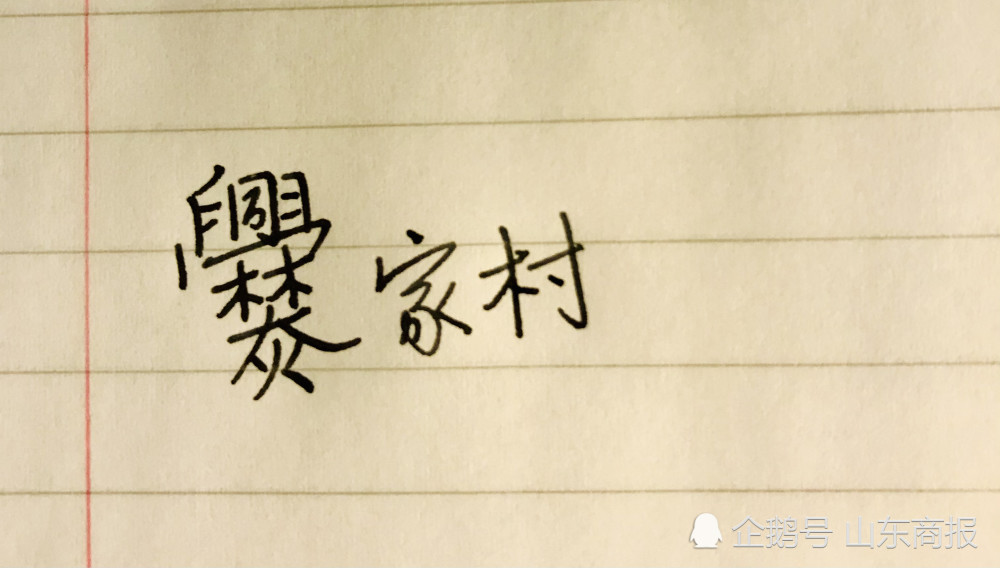 爨家村
企鹅号 山东商报